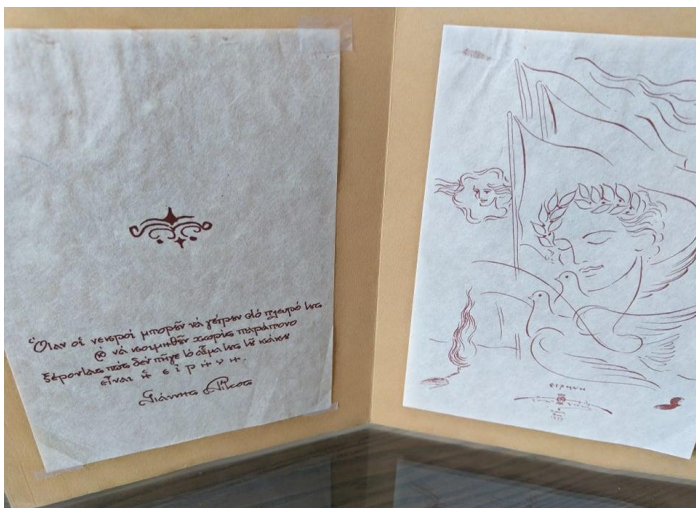 Ὅταν οἱ νεκροί μποροῦν νά γείρουν στό πλευρό τους
καί νά κοιμηθοῦν χωρίς παράπονο
ξέροντας πώς δέν πῆγε τό αἷμα τους τοῦ κάκου
εἶναι ἡ ε ἰ ρ ή ν η.
Γιάννης Ρίτσος
ειρηνη